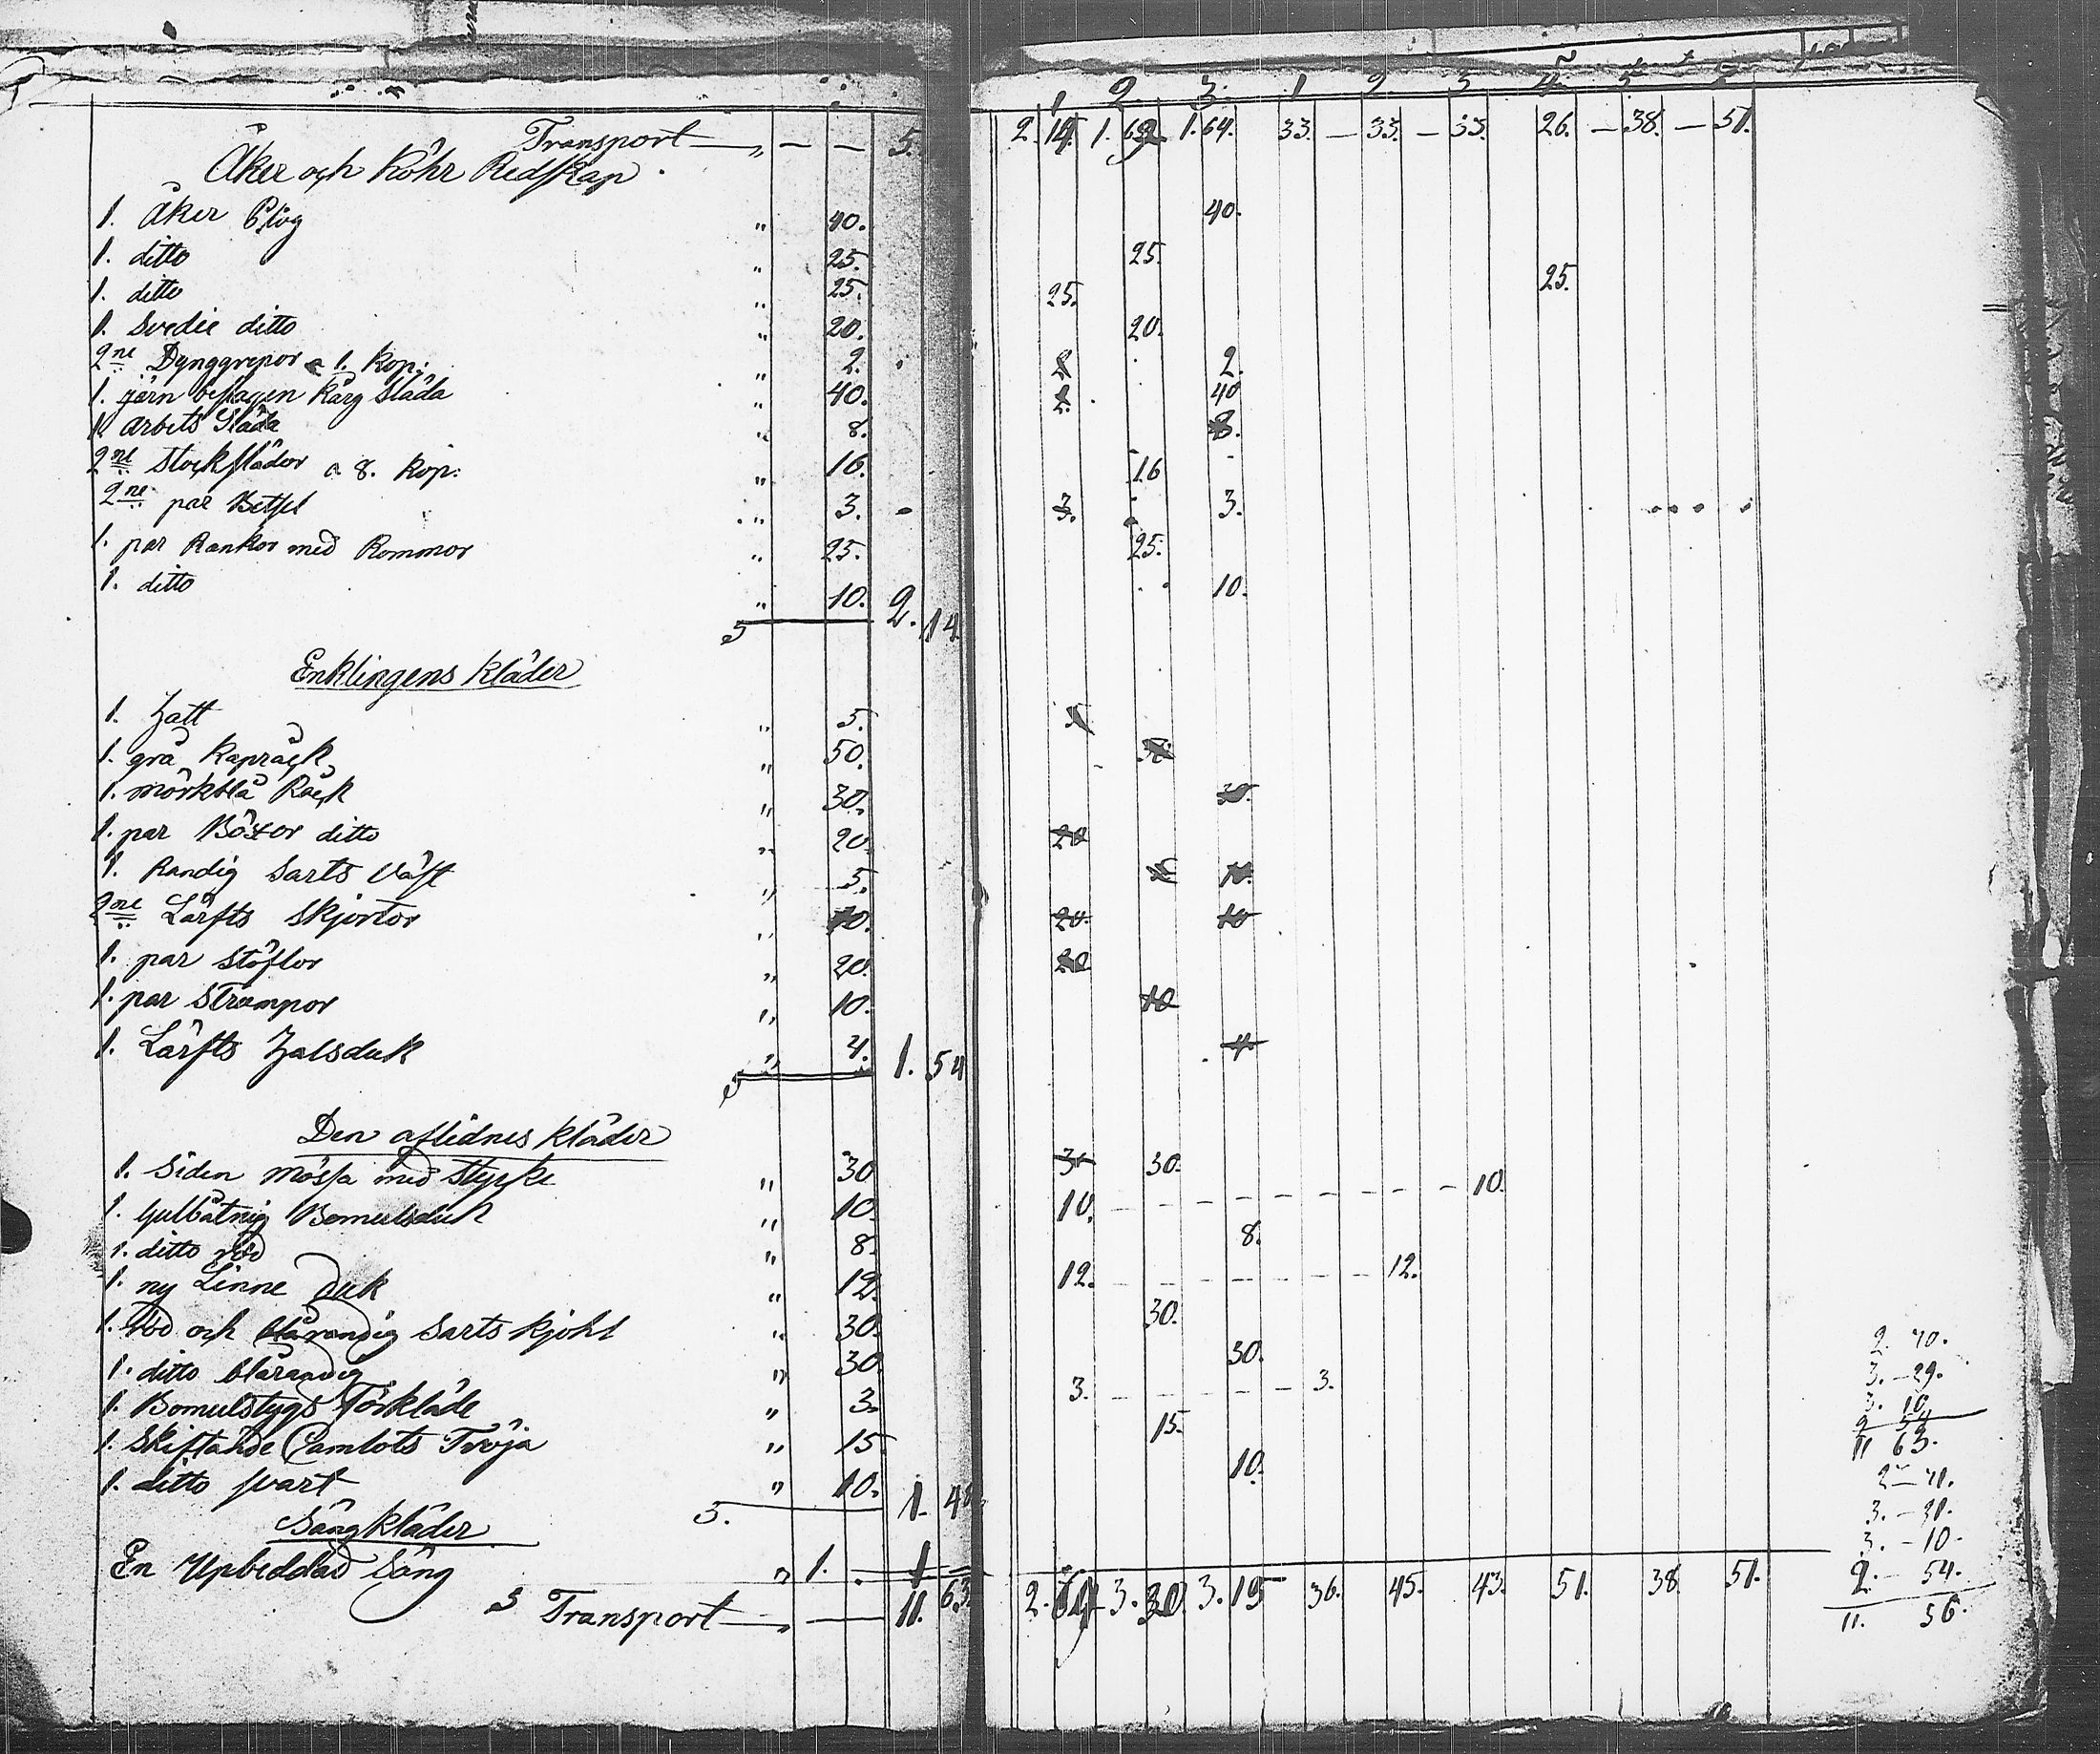 1 2. 3. 1 2. 3 4. 5
Transport — „ — — 5. 2. 14 1. 69 1.64. 33. — 33. — 33. 26. — 38. — 51.
Åker och Köhr Redskap.
1. Åker Plog „ 40. 40.
1. ditto „ 25. 25.
1. ditto „ 25. 25. 25.
1. Svedie ditto „ 20. 20.
2ne Dynggrepor a 1. Kop: „ 2. 2.
1. järn beslagen Karg Släda „ 40. 40
1. Arbets Släda „ 8. 8.
2ne Stockslädor a 8. Kop: „ 16. 16
2ne par Betsel „ 3. 3. 3.
1. par Rankor med Rommor „ 25. 25.
1. ditto „ 10. 10.
S 2. 14
Enklingens kläder
1. Hatt „ 5.
1. grå Kapråck „ 50.
1. mörkblå Råck „ 30. 30.
1. par Böxor ditto „ 20. 20
1. Randig Sarts Väst „ 5.
2ne Lärfts Skjortor „ 10. 20. 10
1. par Stöflor „ 20. 20
1. par Strumpor „ 10. 10
1. Lärfts Halsduk „ 4. 4.
S 1. 54
Den aflidnes kläder
1. Siden Mössa med stycke „ 30 30.
1. gulbåtnig Bomulsduk „ 10. 10. — — — — — — — 10.
1. ditto röd „ 8. 8.
1. ny Linne duk „ 12. 12. — — — — — — 12.
1. Röd och blårandig Sarts kjohl „ 30. 30.
1. ditto blårandig „ 30. 30.
1. Bomulstygs Förkläde „ 3. 3. — — — — — 3.
1. Skiftande Camlots Tröja „ 15. 15.
1. ditto svart „ 10. 10.
S. 1. 48
Sängkläder
En Upbeddad Säng „ 1. 1
S Transport — „ — 11. 63. 3. 30. 3. 15 36. 45. 43. 51. 38 51.
2. 70.
3. — 29.
3. 10
2 54
11 63.
2 — 71.
3. — 31.
3. — 10.
2. — 54.
11. 56.